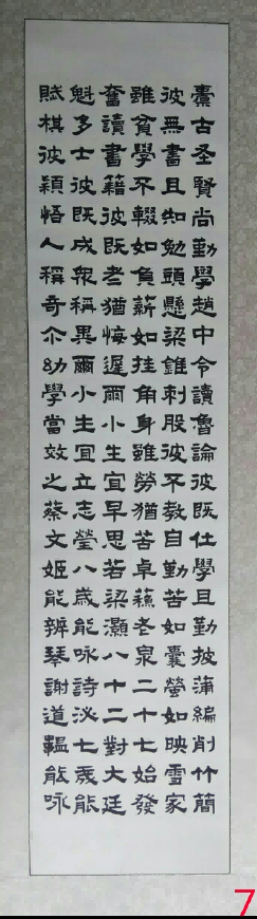 橐古圣賢尚勤學趙中令讀魯論彼既仕學且勤披蒲編削竹簡
彼無書且知勉頭懸梁錐刺股彼不教自勤苦如囊螢如映雪家
雖貧學不輟如負薪如挂角身雖勞猶苦卓蘇老泉二十七始發
奮讀書籍彼既老猶悔遲爾小生宜早思若梁灝八十二對大廷
魁多士彼既成衆稱異爾小生冝立志瑩八歲能咏詩泌七歲能
賦棋彼穎悟人稱奇尒幼學當效之蔡文姬能辨琴謝道韞能咏
7